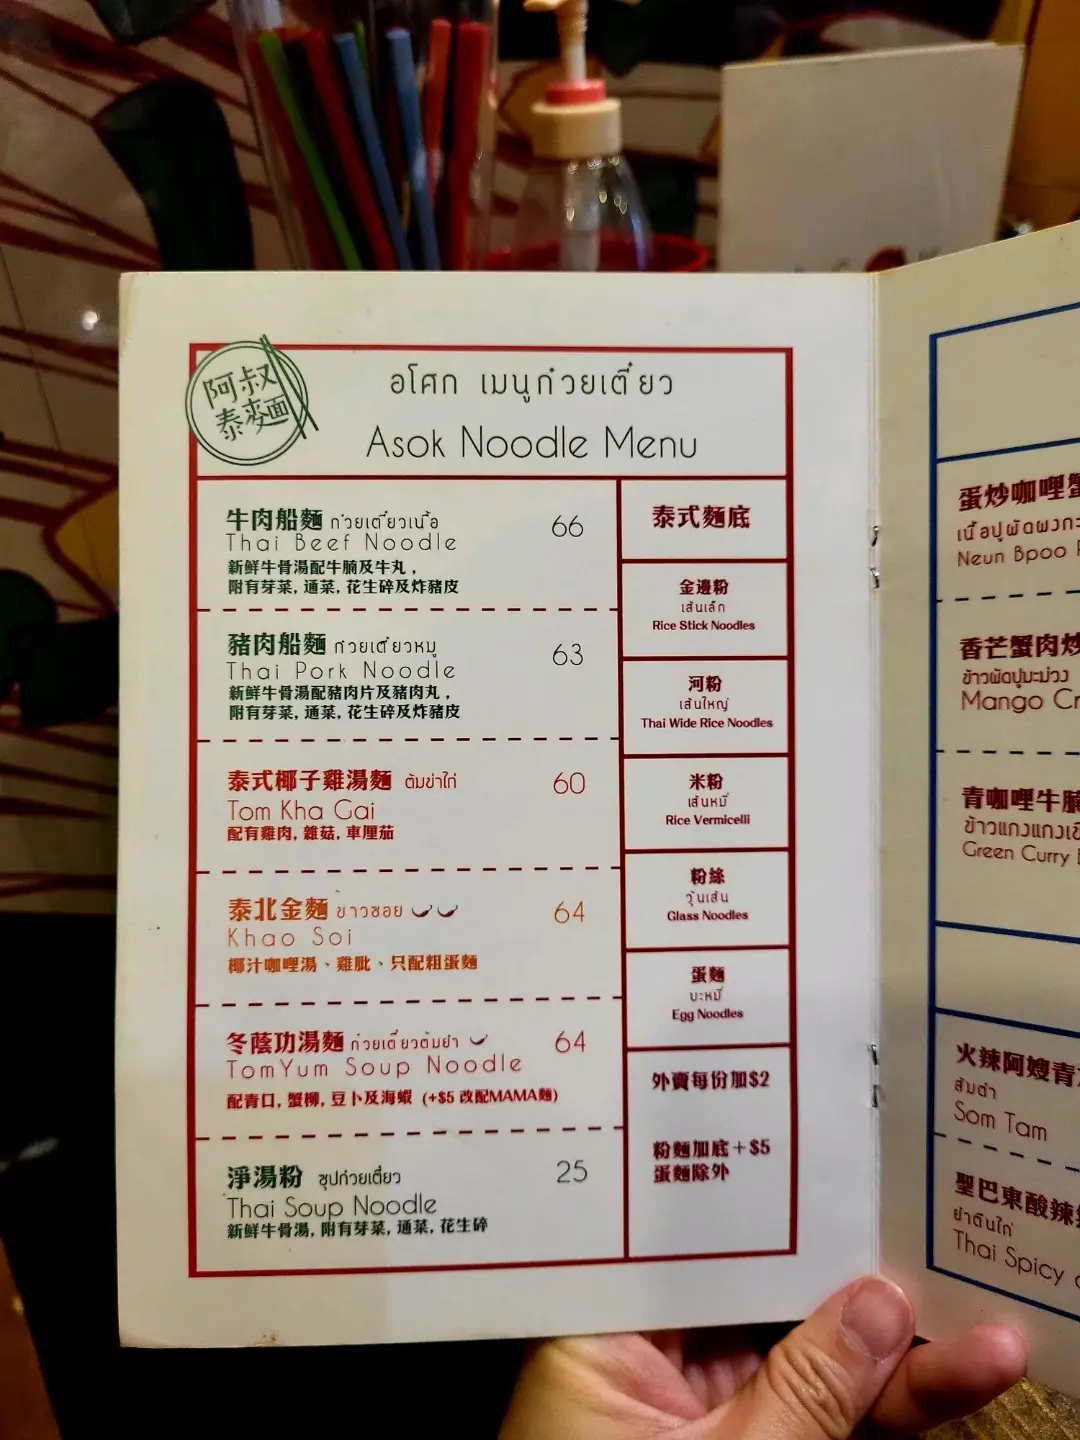 阿叔
泰麵
อโศก เมนูก๋วยเตี๋ยว
Asok Noodle Menu
牛肉船麵 ก๋วยเตี๋ยวเนื้อ 66
Thai Beef Noodle
新鮮牛骨湯配牛腩及牛丸,
附有芽菜, 通菜, 花生碎及炸豬皮
豬肉船麵 ก๋วยเตี๋ยวหมู 63
Thai Pork Noodle
新鮮牛骨湯配豬肉片及豬肉丸,
附有芽菜, 通菜, 花生碎及炸豬皮
泰式椰子雞湯麵 ต้มข่าไก่ 60
Tom Kha Gai
配有雞肉, 雜菇, 車厘茄
泰北金麵 ขาวซอย 64
Khao Soi
椰汁咖哩湯、雞肶、只配粗蛋麵
冬蔭功湯麵 ก๋วยเตี๋ยวต้มยำ 64
TomYum Soup Noodle
配青口, 蟹柳, 豆卜及海蝦 (+$5 改配MAMA麵)
淨湯粉 ซุปก๋วยเตี๋ยว 25
Thai Soup Noodle
新鮮牛骨湯, 附有芽菜, 通菜, 花生碎
泰式麵底
金邊粉
เส้นเล็ก
Rice Stick Noodles
河粉
เส้นใหญ่
Thai Wide Rice Noodles
米粉
เส้นหมี่
Rice Vermicelli
粉絲
วุ้นเส้น
Glass Noodles
蛋麵
บะหมี่
Egg Noodles
外賣每份加$2
粉麵加底+$5
蛋麵除外
蛋炒咖哩蟹
เนื้อปูผัดผงกะ
Neun Bpoo
香芒蟹肉炒
ข้าวผัดปูมะม่วง
Mango Cr
青咖哩牛腩
ข้าวแกงแกงเขี
Green Curry
火辣阿嫂青
ส้มตำ
Som Tam
聖巴東酸辣
ยำตีนไก่
Thai Spicy